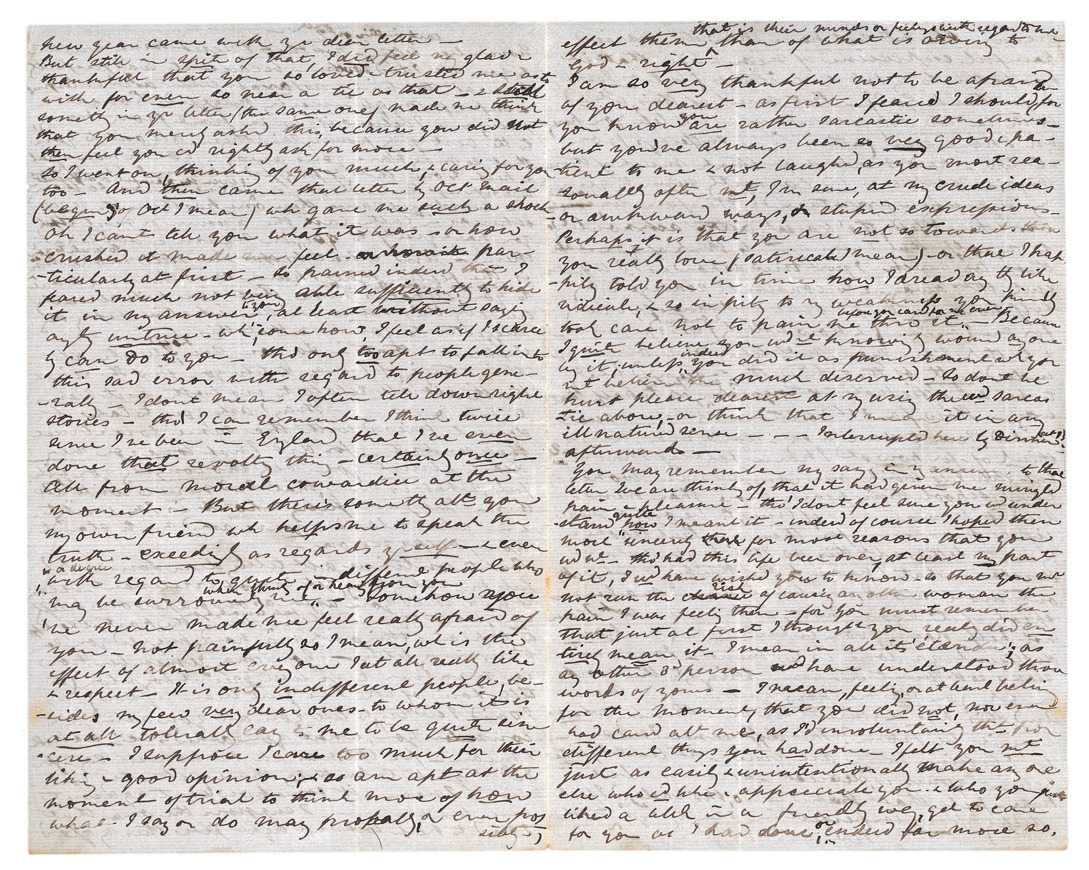 new year came with yr dear letter —
But still in spite of that, I did feel my glad &
thankful that you so loved & trusted me as to
wish for ever so near a tie as that — & still
somethg in yr letter (the same one) made me think
that you merely asked this, because you did not
then feel you cd rightly ask for more —
So I went on, thinking of you much, & caring for you
too — And then came that letter by Oct mail
(begng of Oct I mean) wh gave me such a shock —
Oh I can't tell you what it was — or how
crushed it made me feel — par-
-ticularly at first — so pained indeed that I
feared much not being able sufficiently to hide
it in my answer to you, at least without sayg
aught untrue — wh, somehow, I feel as if I scarce
ly can do to you — tho' only too apt to fall into
this sad error with regard to people gene-
-rally — I don't mean I often tell downright
stories — tho' I can remember I think twice
since I've been in England that I've even
done that revoltg thing — certainly once —
all from moral cowardice at the
moment — But there's somethg abt you
my own friend wh helps me to speak the
truth — exceedingly as regards yrself — & even
in a degree
with regard to quite different people who
when thinkg of or hearg from you
may be surroundg me — Somehow you
've never made me feel really afraid of
you — not painfully so I mean, wh is the
effect of almost every one I at all really like
& respect — It is only indifferent people, be-
-sides my few very dear ones — to whom it is
at all tolerably easy to me to be quite sin-
-cere — I suppose I care too much for their
likg & good opinion, & so am apt at the
moment of trial to think more of how
what I say or do may probably, or even pos
sibly,
that is their minds or feelings with regard to me
effect them, than of what is owing to
God & right —
I am so very thankful not to be afraid
of you dearest — as first I feared I should be, for
you know you are rather sarcastic sometimes —
but you've always been so very good & pa-
tient to me & not laughed, as you most rea-
sonably often mt, I'm sure, at my crude ideas
or awkward ways, & stupid expressions —
Perhaps it is that you are not so towards those
you really love (satirical I mean) — or that I hap-
pily told you in time how I dread any thg like
ridicule, & so in pity to my weakness you kindly
when you cared for me even
took care not to pain me thro' it — because
I quite believe you wd'nt knowingly wound any one
by it, unless indeed you did it as punishment wh you
mt believe to be much deserved — So don't be
hurt please dearest at my using the wd sarcas
tic above, or think that I mean it in any
ill natured sense — — — Interrupted here by dinner
afterwards —
You may remember my sayg in answer to that
letter we are thinkg of that it had given me mingled
pain & pleasure — tho' I don't feel sure you'd under
-stand quite how I meant it — indeed of course I hoped then
most sincerely for most reasons that you
wd nt — tho' had this life been over, at least my part
of it, I wd have wished you to know — so that you mt
not run the risk of causing another woman the
pain I was feelg then — for you must remember
that just at first I thought you really did en
tirely mean it, I mean in all its' étendue, as
any other 3d person wd have understood those
words of yours — I mean, feelg, or at least belivg
for the moment, that you did not, nor ever
had cared abt me, as I'd involuntarily tht from
different things you had done — I felt you mt
just as easily & unintentionally make any one
else who cd who appreciate you — & who you just
liked a little in a friendly way, get to care
for you as I had done, or indeed far more so,